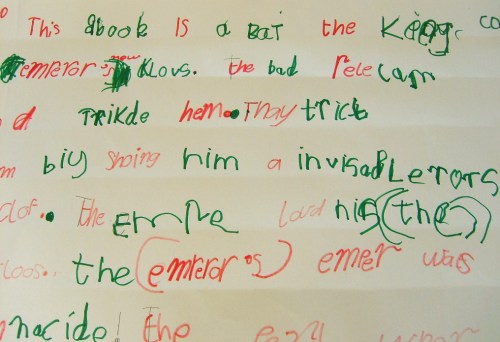 This Qbook Is a BaT the King. co
emeror's new Klous. The bad Pele can
d TRikde hem. Thay trick
m biy Shoing him a invisabLe rors
clof.. The EmPRe lovd his (the
cloos.. the (emreror's) emer was
nacide! the